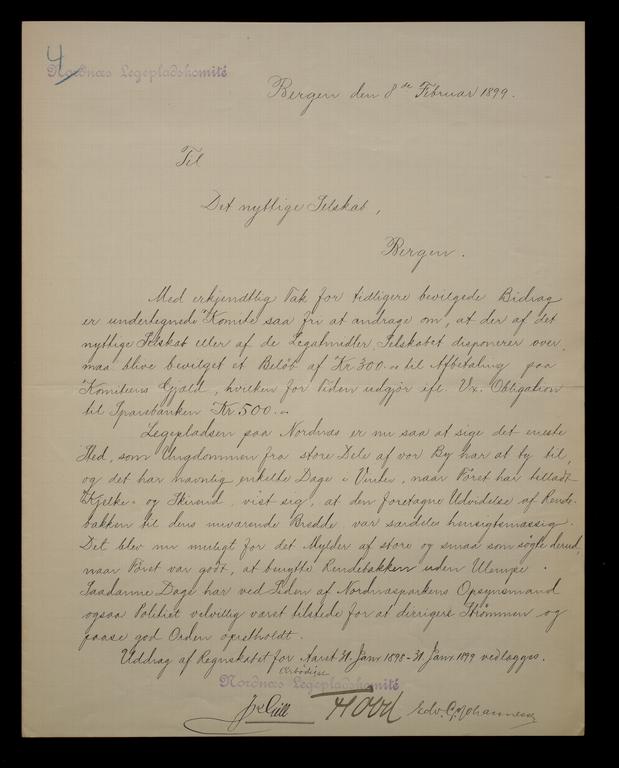 4
Nordnæs Legepladskomité
Bergen den 8de Februar 1899.
Til
Det nyttige Selskab,
Bergen.
Med erkjendtlig Tak for tidligere bevilgede Bidrag
er undertegnede Komite saa fri at andrage om, at der af det
nyttige Selskab eller af de Legatmidler Selskabet disponerer over,
maa blive bevilget et Beløb af Kr. 300.- til Afbetaling paa
Komiteens Gjæld, hvilken for Tiden udgjør ifl. Vx. Obligation
til Sparebanken Kr. 500.-
Legepladsen paa Nordnæs er nu saa at sige det eneste
Sted, som Ungdommen fra store Dele af vor By har at ty til,
og det har navnlig enkelte Dage i Vinter, naar Føret har tilladt
Kjelke- og Skirend, vist sig, at den foretagne Udvidelse af Rende-
bakken til dens nuværende Bredde var særdeles hensigtsmæssig.
Det blev nu muligt for det Mylder af store og smaa som søgte derud,
naar Føret var godt, at benytte Rendebakken uden Ulempe.
Saadanne Dage har ved Siden af Nordnæsparkens Opsynsmand
ogsaa Politiet velvillig været tilstede for at dirrigere Strømmen og
paase god Orden opretholdt.
Uddrag af Regnskabet for Aaret 31 Janr 1898 - 31 Janr 1899 vedlægges.
Ærbødigst
Nordnæs Legepladskomité
Edv. G. Johannesen